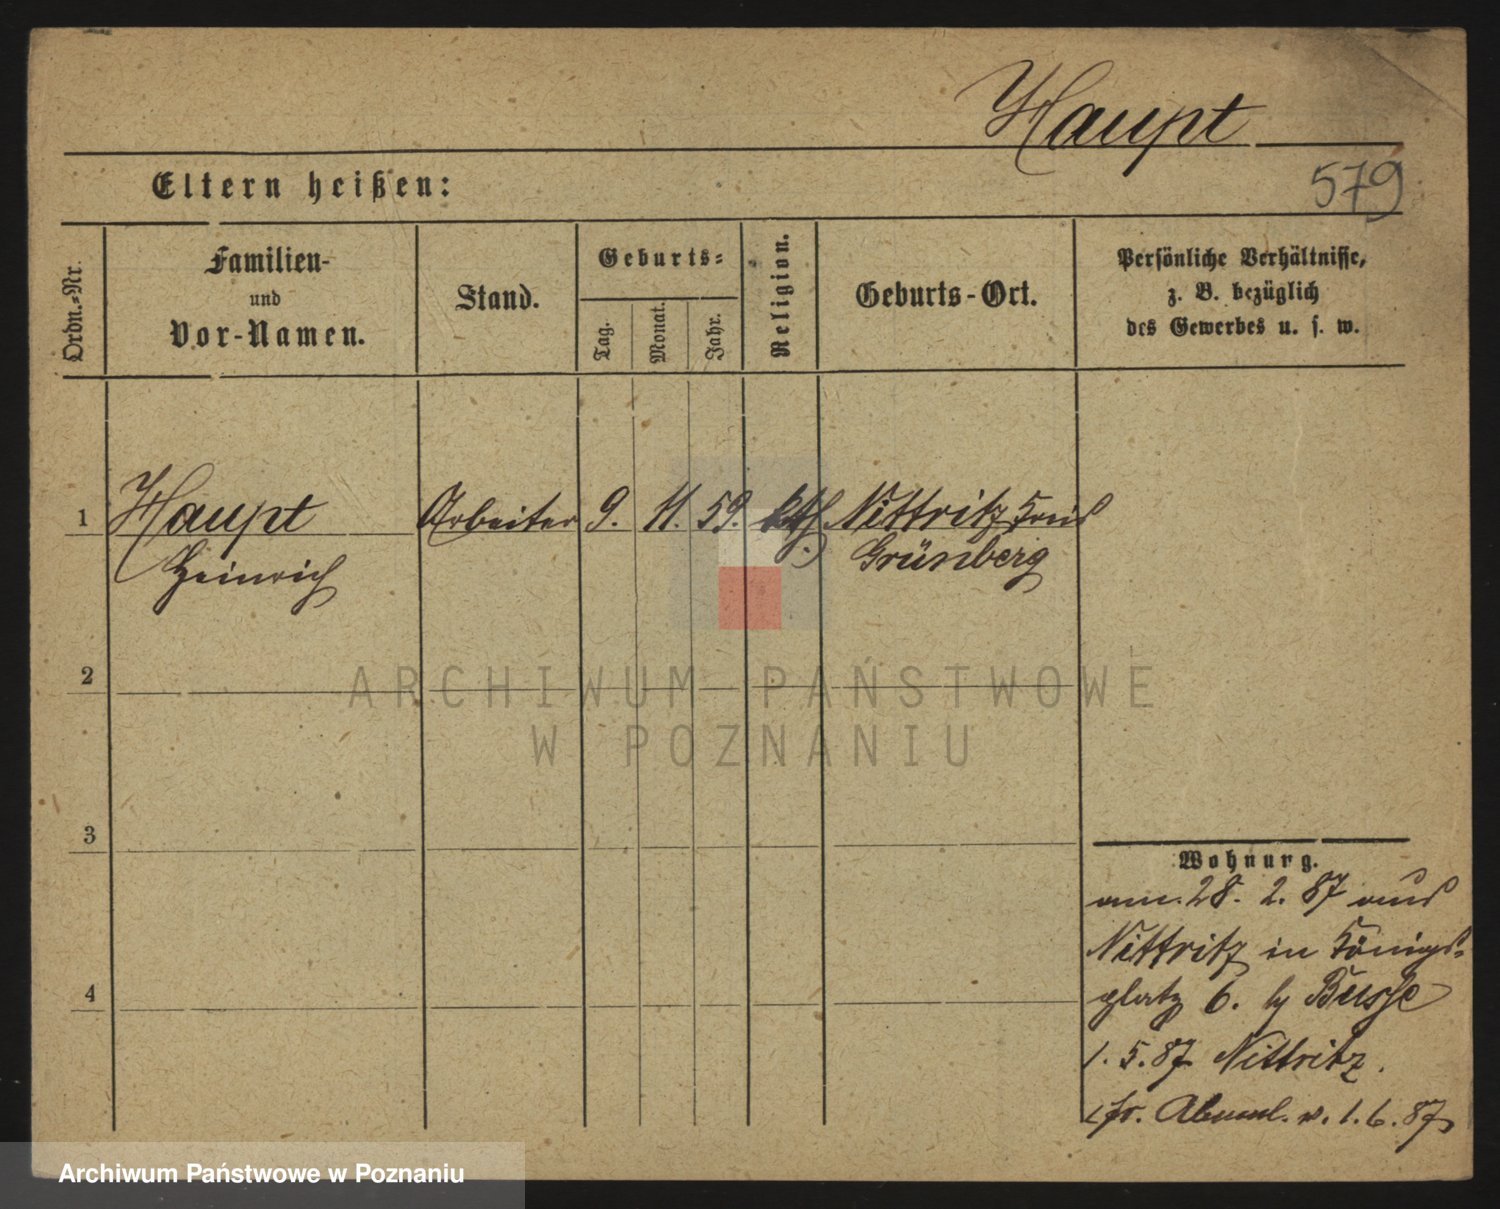 Haupt
579
Eltern heißen:
Ordn.-Nr.
Familien-
und
Vor-Namen.
Stand.
Geburts-
Tag.
Monat.
Jahr.
Religion.
Geburts-Ort.
Persönliche Verhältnisse,
z. B. bezüglich
des Gewerbes u. s. w.
1 Haupt Arbeiter 9. 11. 59. kth. Nittritz Kreis
Heinrich Grünberg
2
3
4
ARCHIWUM PAŃSTWOWE
W POZNANIU
Wohnung.
am 28. 2. 87 aus
Nittritz in Königs-
platz 6. by Busse
1. 5. 87 Nittritz.
Abmel. v. 1. 6. 87
Archiwum Państwowe w Poznaniu